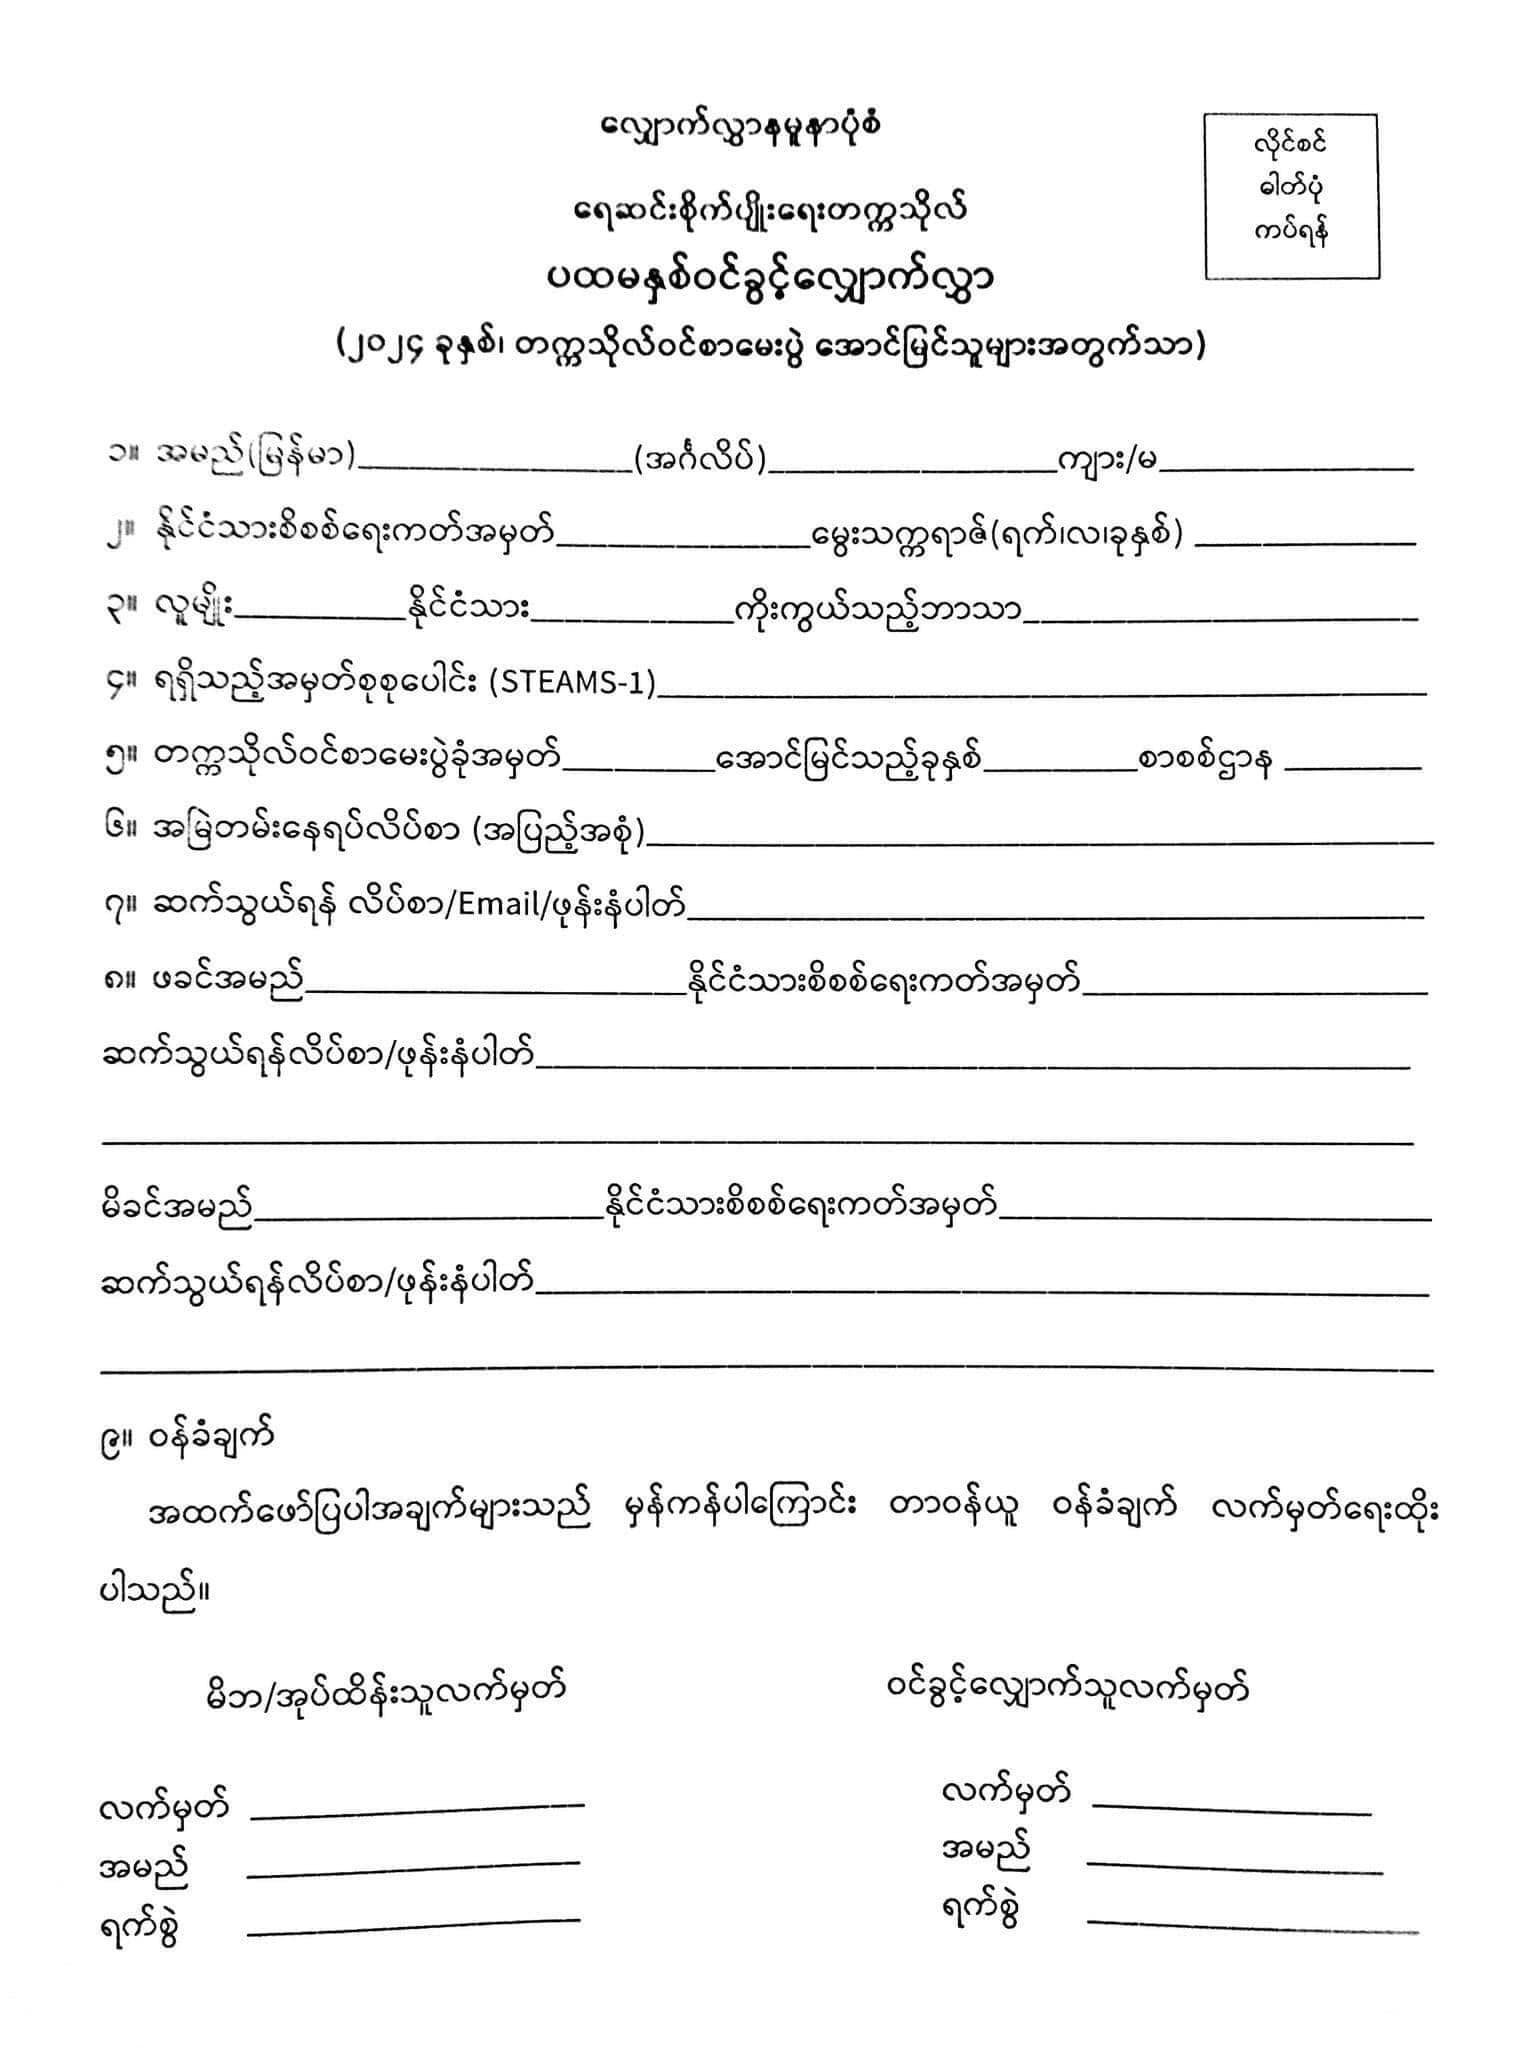 လျှောက်လွှာနမူနာပုံစံ
လိုင်စင်
ဓါတ်ပုံ
ကပ်ရန်
ရေဆင်းစိုက်ပျိုးရေးတက္ကသိုလ်
ပထမနှစ်ဝင်ခွင့်လျှောက်လွှာ
(၂၀၂၄ ခုနှစ်၊ တက္ကသိုလ်ဝင်စာမေးပွဲ အောင်မြင်သူများအတွက်သာ)
၁။ အမည်(မြန်မာ)________________(အင်္ဂလိပ်)________________ကျား/မ________________
၂။ နိုင်ငံသားစိစစ်ရေးကတ်အမှတ်________________မွေးသက္ကရာဇ်(ရက်၊လ၊ခုနှစ်) ________________
၃။ လူမျိုး__________နိုင်ငံသား____________ကိုးကွယ်သည့်ဘာသာ________________________
၄။ ရရှိသည့်အမှတ်စုစုပေါင်း (STEAMS-1)________________________________
၅။ တက္ကသိုလ်ဝင်စာမေးပွဲခုံအမှတ်_________အောင်မြင်သည့်ခုနှစ်_________စာစစ်ဌာန ________
၆။ အမြဲတမ်းနေရပ်လိပ်စာ (အပြည့်အစုံ)________________________________
၇။ ဆက်သွယ်ရန် လိပ်စာ/Email/ဖုန်းနံပါတ်________________________________
၈။ ဖခင်အမည်______________________နိုင်ငံသားစိစစ်ရေးကတ်အမှတ်____________________
ဆက်သွယ်ရန်လိပ်စာ/ဖုန်းနံပါတ်________________________________
မိခင်အမည်____________________နိုင်ငံသားစိစစ်ရေးကတ်အမှတ်________________________
ဆက်သွယ်ရန်လိပ်စာ/ဖုန်းနံပါတ်________________________________
၉။ ဝန်ခံချက်
အထက်ဖော်ပြပါအချက်များသည် မှန်ကန်ပါကြောင်း တာဝန်ယူ ဝန်ခံချက် လက်မှတ်ရေးထိုး
ပါသည်။
မိဘ/အုပ်ထိန်းသူလက်မှတ် ဝင်ခွင့်လျှောက်သူလက်မှတ်
လက်မှတ် ________________ လက်မှတ် ________________
အမည် ________________ အမည် ________________
ရက်စွဲ ________________ ရက်စွဲ ________________